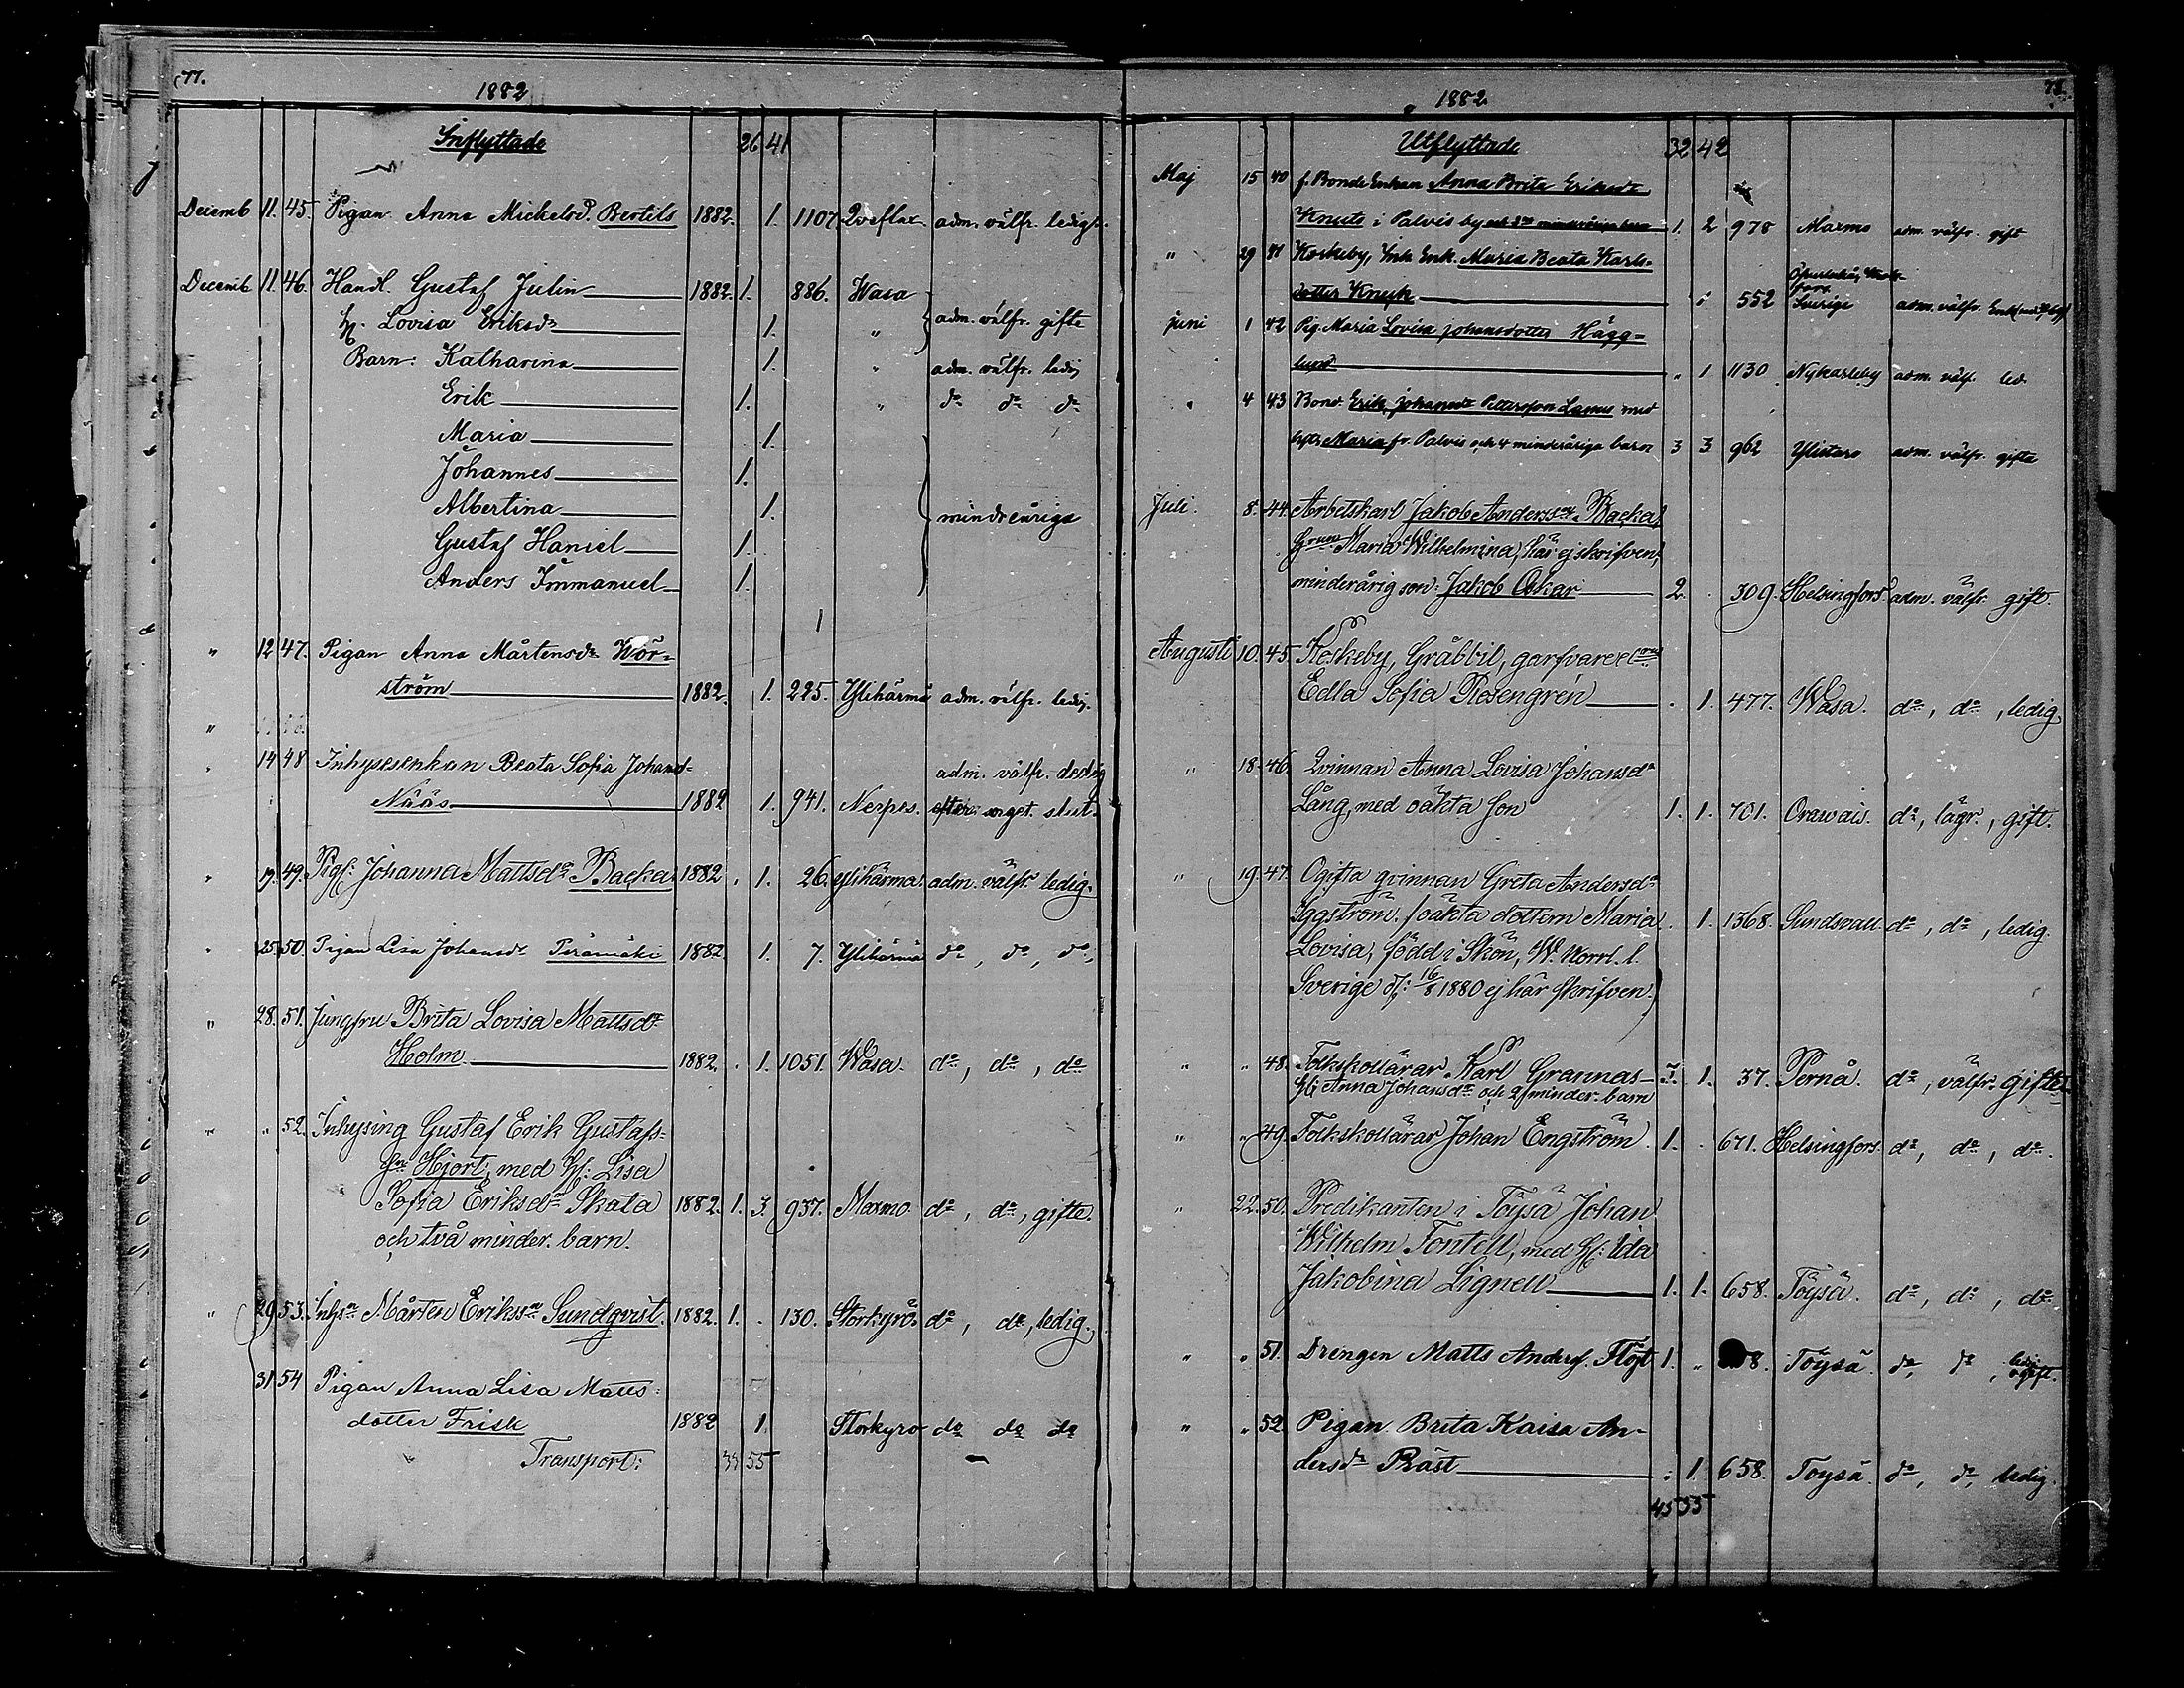 77.
1882
Inflyttade 26 41
Decemb 11. 45. Pigan Anna Mickelsd. Bertils 1882. 1. 1107 Qveflax adm. välfr. ledig.
Decemb 11. 46. Handl. Gustaf Julin 1882. 1. 886. Wasa
H. Lovisa Eriksdr 1. " adm. välfr. gifte
Barn: Katharina 1. " adm. välfr. ledig
Erik 1. " do do do
Maria 1.
Johannes 1.
Albertina 1. mindreåriga
Gustaf Haniel 1.
Anders Immanuel 1.
1
" 12 47. Pigan Anna Mårtensdr Wör-
ström 1882. 1. 225. Ylihärmä adm. välfr. ledig.
"
" 14 48 Inhysesenkan Beata Sofia Johansd- adm. välfr. ledig
Nääs 1882 1. 941. Nerpes. slut.
" 19. 49. Johanna Mattsdr Backa 1882 . 1. 26. Ylihärmä adm. välfr. ledig.
" 25 50. Pigan Lisa Johansdr Perämäki 1882 1. 7. Ylihärmä do, do, do,
" 28. 51. Jungfru Brita Lovisa Mattsdr
Holm 1882. . 1. 1051. Wasa. do, do, do
" " 52. Inhysing Gustaf Erik Gustafs-
son Hjort, med H: Lisa
Sofia Eriksdr Skata 1882. 1. 3. 937. Maxmo do, do, gifte.
och två minder. barn.
" 29. 53. Inhysn Mårten Erikssn Sundqvist. 1882. 1. . 130. Storkyrö. do, do, ledig.
31 54 Pigan Anna Lisa Matts-
dotter Frisk 1882 1. Storkyro do do do
Transport: 33 55
1882
Utflyttade 32 42
Maj 15 40 f. Bonde Enkan Anna Brita Eriksdr
Knuts i Palvis by 1. 2 978 Maxmo adm. välfr. gift
" 29 41 Koskeby, Inh. Enk. Maria Beata Karls-
dotter Knysk 1 552 Sverige adm. välfr.
juni 1 42 Pig. Maria Lovisa Johansdotter Hägg-
lund " 1 1130 Nykarleby adm. välf. led.
" 4 43 Bond. Erik Johanss Pettersson Lamus med
Maria fr. Palvis och 4 minderåriga barn 3 3 962 Ylistaro adm. välfr. gifta
Juli. 8. 44. Arbetskarl Jakob Anderssn Backa,
Maria Wilhelmina, här ej skrifven,
minderårig son: Jakob Oskar 2. . 309. Helsingfors adm. välfr. gift.
Augusti 10. 45. Koskeby, Gräbbil, garfvare
Edla Sofia Rosengrén . 1. 477. Wasa. do, do, ledig.
" 18. 46. Qvinnan Anna Lovisa Johansdr
Lång, med oäkta son 1. 1. 701. Orawais. do, lägr., gift.
" 19. 47. Ogifta qvinnan Greta Andersdr
Iggström (oäkta dottern Maria . 1. 1368. Sundsvall. do, do, ledig.
Lovisa, född i Skön, W. Norrl. l.
Sverige d. 16/8 1880 ej här skrifven.)
" " 48. Folkskollärar Karl Grannas 3. 1. 37. Pernå. do, välfr. gifte
H. Anna Johansdr och 2 minder. barn
" " 49. Folkskollärar Johan Engström 1. . 671. Helsingfors. do, do, do.
" 22. 50. Predikanten i Töysä Johan
Wilhelm Fontell, med H: Ida
Jakobina Lignell 1. 1. 658. Töysä. do, do, do
" " 51. Drengen Matts Anders. Flöjt 1. " 8. Töysä. do, do,
" " 52 Pigan Brita Kaisa An-
dersdr Präst : 1. 658. Töysä. do, do, ledig.
45 55